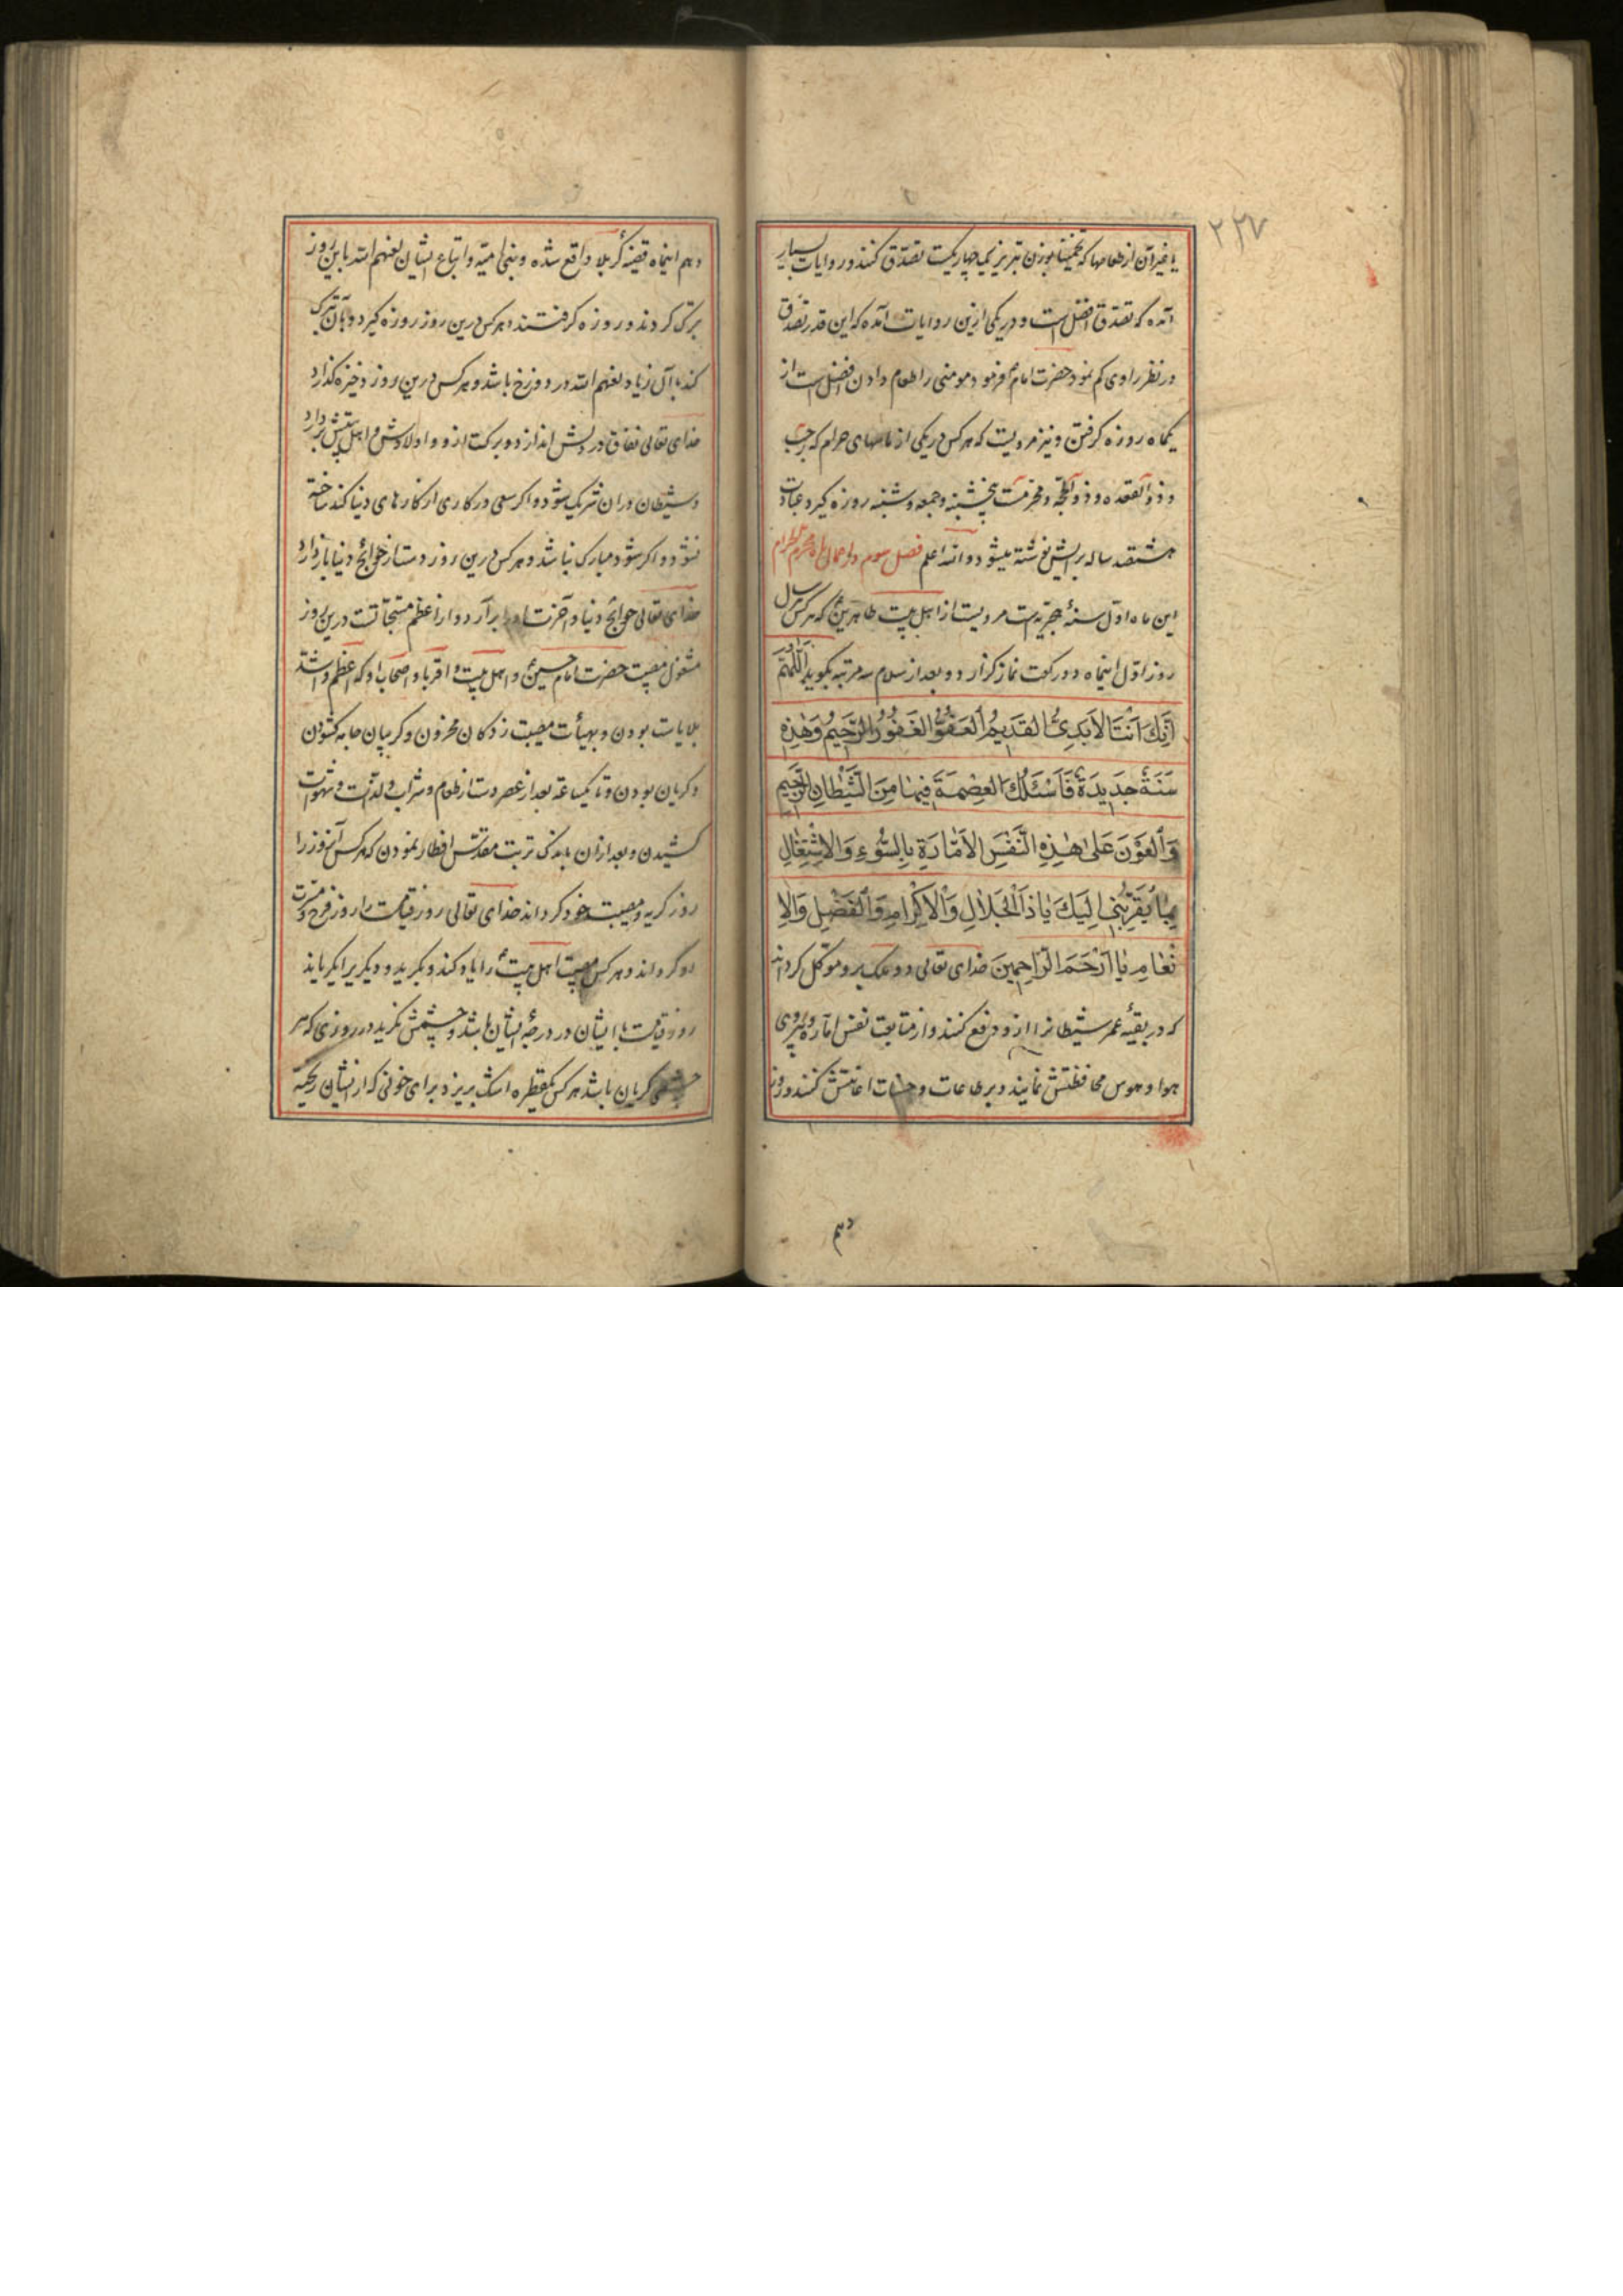 ۲۲۷
یا غیر آن از طعامها که تخمیناً بوزن تبریز نیم چهاریکست تصدّق کند و در روایات بسیار
آمده که تصدّق افضل است و در یکی ازین روایات آمده که این قدر تصدّق
در نظر راوی کم نمود حضرت امام فرمود مومنی را طعام دادن افضل است از
یکماه روزه کرفتن و نیز مرویست که هر کس در یکی از ماههای حرام که رجب
و ذو القعده و ذو الحجّه و محرّمست پنجشنبه و جمعه و شنبه روزه کیرد عبادت
هشتصد ساله برایش نوشته میشود و الله اعلم فصل سوم در اعمال ماه محرم الحرام
این ماه اوّل سنهٔ هجریه است مرویست از اهل بیت طاهرین که هر کس سال
روز اوّل اینماه دو رکعت نماز کزارد و بعد از سلام سه مرتبه بکوید اَللّٰهُمَّ
اِنَّكَ اَنْتَ الاَبَدِیُّ القَدِیمُ العَفُوُّ الغَفُورُ الرَّحِیمُ وَهٰذِهِ
سَنَةٌ جَدِیدَةٌ فَاَسْئَلُكَ العِصْمَةَ فِیهَا مِنَ الشَّیْطَانِ الرَّجِیمِ
وَالعَوْنَ عَلیٰ هٰذِهِ النَّفْسِ الاَمَّارَةِ بِالسُّوءِ وَالاِشْتِغَالِ
بِمَا یُقَرِّبُنِی اِلَیْكَ یَا ذَا الْجَلَالِ وَالْاِکْرَامِ وَالْفَضْلِ وَالاِ
نْعَامِ یَا اَرْحَمَ الرَّاحِمِینَ خدای تعالی دو ملک برو موکل کرداند
که در بقیهٔ عمر شیطانرا ازو دفع کنند و از متابعت نفس اماره و پیروی
هوا و هوس محافظتش نمایند و بر طاعات و حسنات اعانتش کنند و روز
دهم
دهم اینماه قضیهٔ کربلا واقع شده و بنی امیّه و اتباع ایشان لعنهم الله باین روز
تبرک کردند و روزه کرفتند هر کس درین روز روزه کیرد و بآن تبرک
کند با آل زیاد لعنهم الله در دوزخ باشد و هر کس درین روز ذخیره کذارد
خدای تعالی نفاق در دلش اندازد و برکت ازو و اولادش و اهل بیتش بردارد
و شیطان در ان شریک شود و اکر سعی در کاری از کارهای دنیا کند ساخته
نشود و اکر شود مبارک نباشد و هر کس درین روز دست از حوائج دنیا باز دارد
خدای تعالی حوائج دنیا و آخرت او را برآرد و از اعظم مستحبّاتست درین روز
مشغول مصیبت حضرت امام حسین و اهل بیت و اقربا و اصحاب او که اعظم و اشدّ
بلایاست بودن و بهیأت مصیبت زدکان محزون و کریبان جامه کشودن
و کریان بودن و تا یکساعة بعد از عصر دست از طعام و شراب و لذّات و شهوات
کشیدن و بعد ازان باندک تربت مقدّس افطار نمودن که هر کس آنروز را
روز کریه و مصیبت خود کرداند خدای تعالی روز قیامت را روز فرح و مسرّت
او کرداند و هر کس مصیبت اهل بیت را یاد کند و بکرید و دیکریرا بکریاند
روز قیامت با ایشان در درجهٔ ایشان باشد و چشمش نکرید در روزی که هر
چشمی کریان باشد هر کس یکقطره اشک بریزد برای خونی که از ایشان ریخته